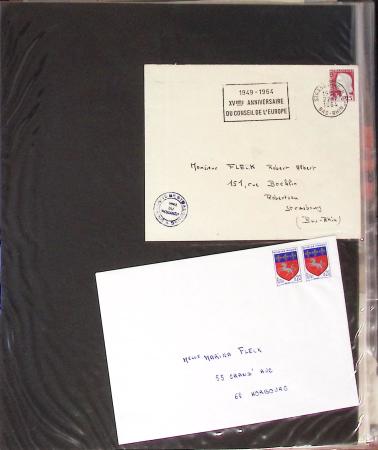 1949-1964
XVème ANNIVERSAIRE
DU CONSEIL DE L'EUROPE
BAS-RHIN
Monsieur FLECK Robert Albert
151, rue Boecklin
Robertsau
Strasbourg
(Bas-Rhin)
MARINA FLECK
55 GRAND' RUE
68 HORBOURG